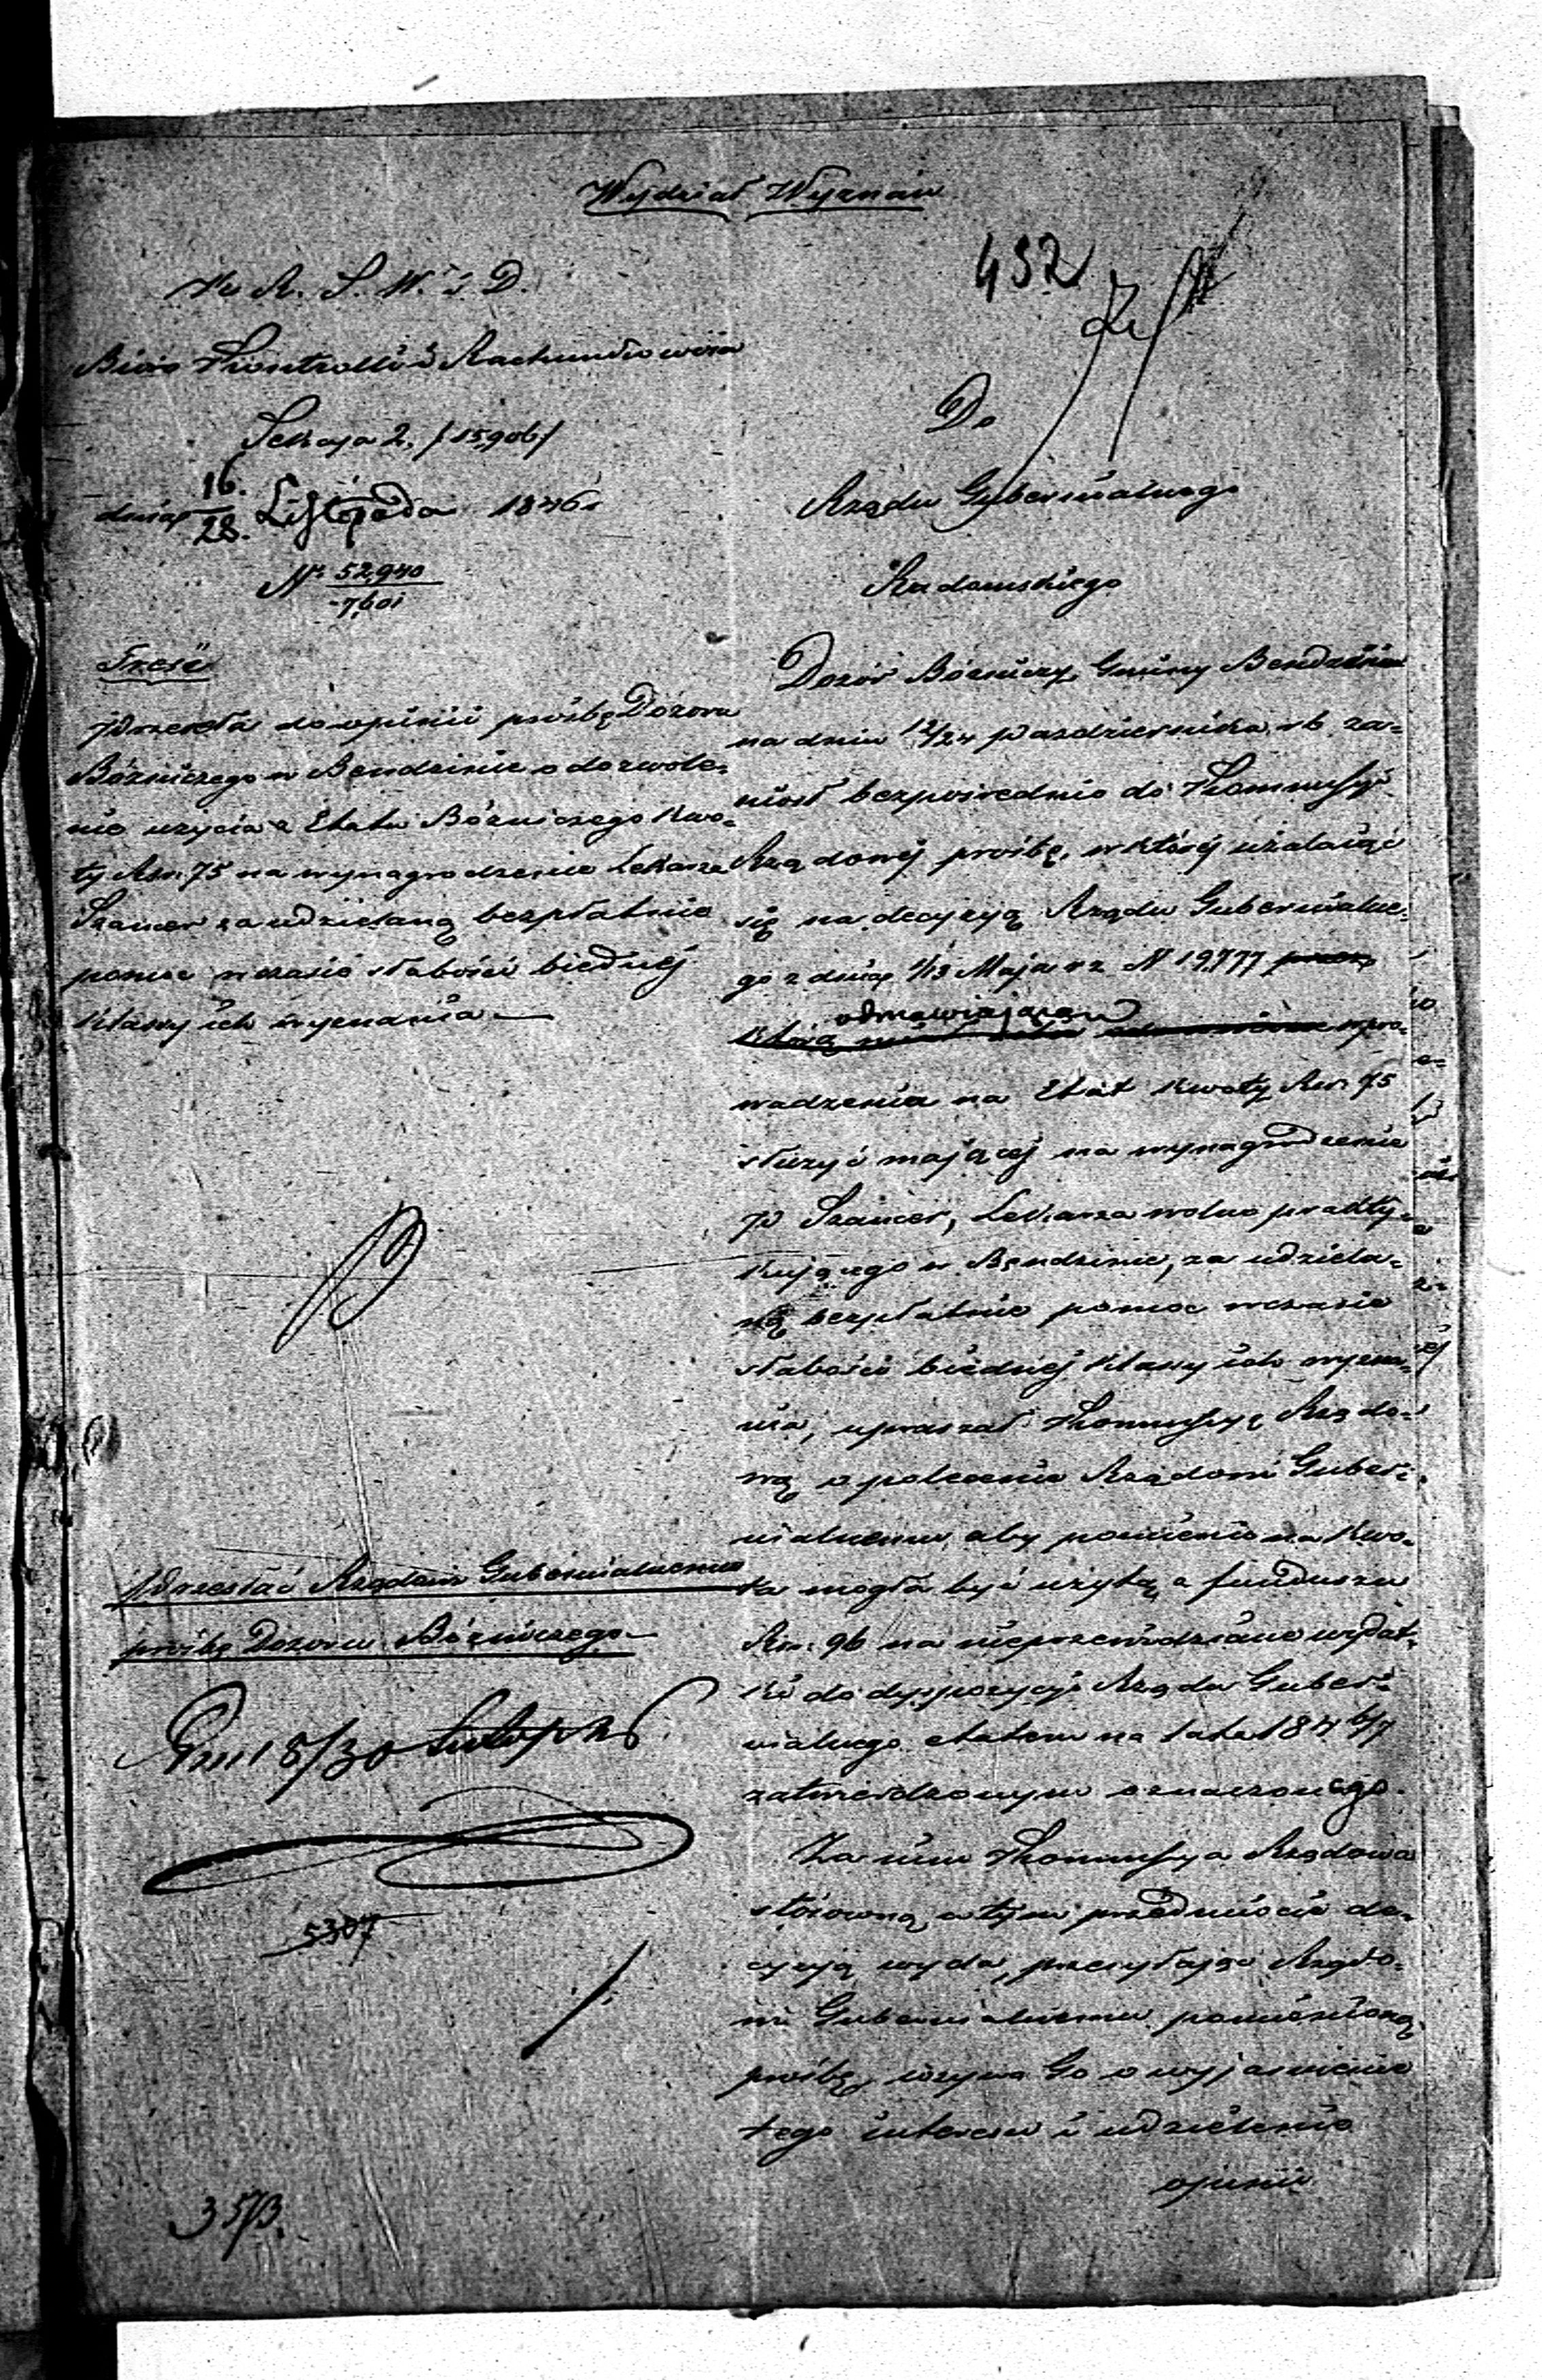 Wydział Wyznań
432
W K. R. S. W. i D.
Biuro Kontrolli i Rachunkowości
Sekcya 2. /15,906/
dnia 16./28. Listopada 1846 r.
Nr 52,940/7,601
Treść
Przesyła do opinii prośbę Dozoru
Bóżniczego w Bendzinie o dozwole-
nie użycia z Etatu Bóżniczego kwo-
ty Rsr. 75 na wynagrodzenie Lekarza
Szancer za udzielaną bezpłatnie
pomoc w czasie słabości biednej
klassy ich wyznania.
Przesłać Rządowi Gubernialnemu
prośbę Dozoru Bóżniczego
18/30
5307
3573.
Do
Rządu Gubernialnego
Radomskiego
Dozór Bóżniczy Gminy Bendzin
na dniu 12/24 Października rb. za-
niósł bezpośrednio do Kommissyi
Rządowej prośbę, w której użalając
się na decyzyą Rządu Gubernialne-
go z dnia 1/13 Maja rz N 19,777
odmawiającą
którą wpro-
wadzenia na Etat kwoty Rsr. 75
służyć mającej na wynagrodzenie
P Szancer, Lekarza wolno prakty-
kującego w Bendzinie, za udziela-
ną bezpłatnie pomoc w czasie
słabości biednej klassy ich wyzna-
nia, upraszał Kommissyą Rządo-
wą o polecenie Rządowi Guber-
nialnemu, aby pomieniona kwo-
ta mogła być użytą z funduszu
Rsr. 96 na nieprzewidziane wydat-
ki do dyspozycyi Rządu Guber-
nialnego etatem na lata 1846/7
zatwierdzonym oznaczonego.
Za nim Kommissya Rządowa
stósowną w tym przedmiocie de-
cyzyą wyda, przesyłając Rządo-
wi Gubernialnemu pomienioną
prośbę, wzywa Go o wyjaśnienie
tego interesu i udzielenie
opinii